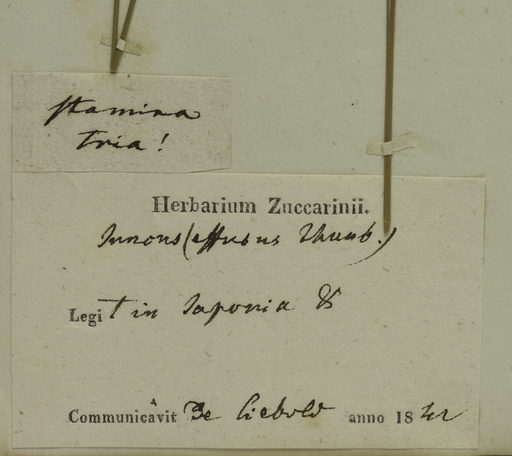 Stamina
tria!
Herbarium Zuccarinii.
Juncus (effusus Thunb.)
Legit in Japonia &
Communicavit De Siebold anno 1842